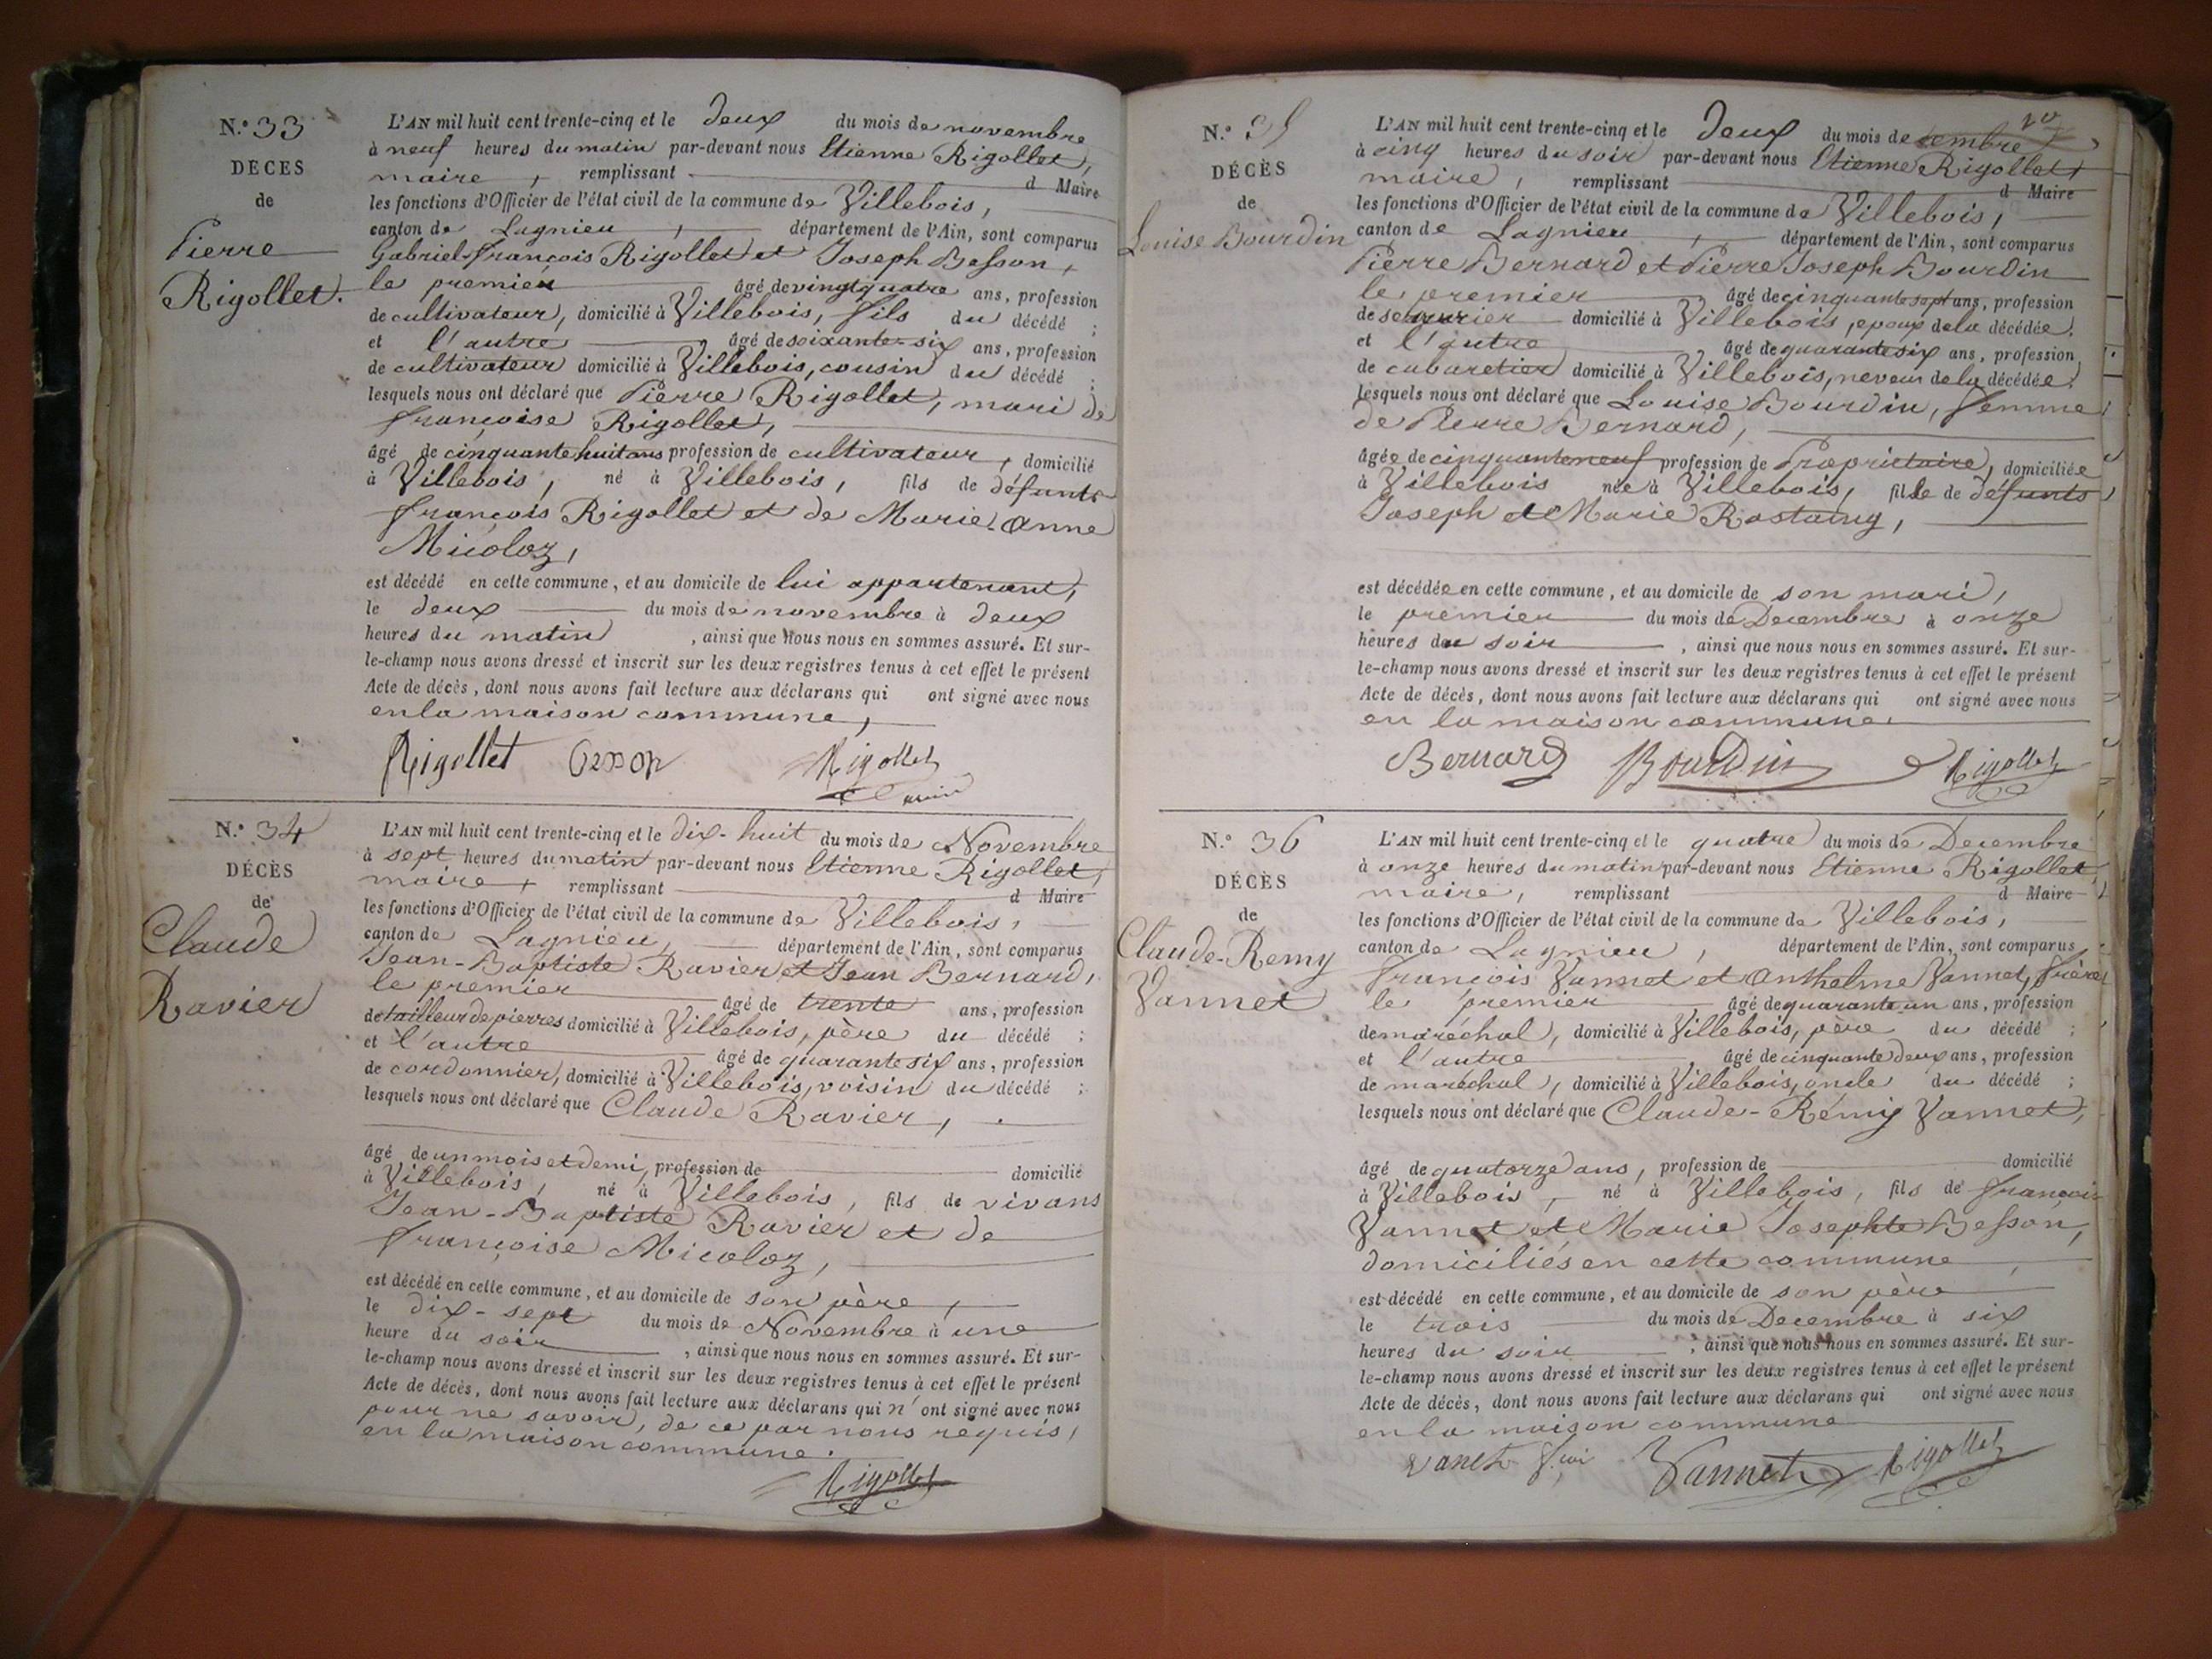 N.º 33
DÉCÈS
de
Pierre
Rigollet.
L'AN mil huit cent trente-cinq et le deux du mois de novembre
à neuf heures du matin par-devant nous Etienne Rigollet,
maire, remplissant d Maire
les fonctions d'Officier de l'état civil de la commune de Villebois,
canton de Lagnieu, département de l'Ain, sont comparus
Gabriel-françois Rigollet et Joseph Besson,
le premier âgé de vingt quatre ans, profession
de cultivateur, domicilié à Villebois, fils du décédé ;
et l'autre âgé de soixante-six ans, profession
de cultivateur domicilié à Villebois, cousin du décédé ;
lesquels nous ont déclaré que Pierre Rigollet, mari de
françoise Rigollet,
âgé de cinquante huit ans profession de cultivateur, domicilié
à Villebois, né à Villebois, fils de défunts
françois Rigollet et de Marie-Anne
Micoloz,
est décédé en cette commune, et au domicile de lui appartenant,
le deux du mois de novembre à deux
heures du matin, ainsi que nous nous en sommes assuré. Et sur-
le-champ nous avons dressé et inscrit sur les deux registres tenus à cet effet le présent
Acte de décès, dont nous avons fait lecture aux déclarans qui ont signé avec nous
en la maison commune,
Rigollet Rigollet
N.º 34
DÉCÈS
de
Claude
Ravier
L'AN mil huit cent trente-cinq et le dix-huit du mois de Novembre
à sept heures du matin par-devant nous Etienne Rigollet,
maire, remplissant d Maire
les fonctions d'Officier de l'état civil de la commune de Villebois,
canton de Lagnieu, département de l'Ain, sont comparus
Jean-Baptiste Ravier et Jean Bernard,
le premier âgé de trente ans, profession
de tailleur de pierres domicilié à Villebois, père du décédé ;
et l'autre âgé de quarante six ans, profession
de cordonnier, domicilié à Villebois, voisin du décédé ;
lesquels nous ont déclaré que Claude Ravier,
âgé de un mois et demi, profession de domicilié
à Villebois, né à Villebois, fils de vivans
Jean-Baptiste Ravier et de
françoise Micoloz,
est décédé en cette commune, et au domicile de son père,
le dix-sept du mois de Novembre à une
heure du soir, ainsi que nous nous en sommes assuré. Et sur-
le-champ nous avons dressé et inscrit sur les deux registres tenus à cet effet le présent
Acte de décès, dont nous avons fait lecture aux déclarans qui n'ont signé avec nous
pour ne savoir, de ce par nous requis,
en la maison commune.
Rigollet
20
N.º 35
DÉCÈS
de
Louise Bourdin
L'AN mil huit cent trente-cinq et le deux du mois de
à cinq heures du soir par-devant nous Etienne Rigollet,
maire, remplissant d Maire
les fonctions d'Officier de l'état civil de la commune de Villebois,
canton de Lagnieu, département de l'Ain, sont comparus
Pierre Bernard et Pierre Joseph Bourdin
le premier âgé de cinquante sept ans, profession
de serrurier domicilié à Villebois, epoux de la décédée ;
et l'autre âgé de quarante six ans, profession
de cabaretier domicilié à Villebois, neveu de la décédée ;
lesquels nous ont déclaré que Louise Bourdin, femme
de Pierre Bernard,
âgée de cinquante neuf profession de Propriétaire, domiciliée
à Villebois née à Villebois, fille de défunts
Joseph et Marie Rostaing,
est décédée en cette commune, et au domicile de son mari,
le premier du mois de Decembre à onze
heures du soir, ainsi que nous nous en sommes assuré. Et sur-
le-champ nous avons dressé et inscrit sur les deux registres tenus à cet effet le présent
Acte de décès, dont nous avons fait lecture aux déclarans qui ont signé avec nous
en la maison commune
Bernard Bourdin Rigollet
N.º 36
DÉCÈS
de
Claude-Remy
Vannet
L'AN mil huit cent trente-cinq et le quatre du mois de Decembre
à onze heures du matin par-devant nous Etienne Rigollet,
maire, remplissant d Maire
les fonctions d'Officier de l'état civil de la commune de Villebois,
canton de Lagnieu, département de l'Ain, sont comparus
françois Vannet et Anthelme Vannet, frères
le premier âgé de quarante un ans, profession
de maréchal, domicilié à Villebois, père du décédé ;
et l'autre âgé de cinquante deux ans, profession
de maréchal, domicilié à Villebois, oncle du décédé ;
lesquels nous ont déclaré que Claude-Rémy Vannet,
âgé de quatorze ans, profession de domicilié
à Villebois, né à Villebois, fils de françois
Vannet et Marie Josephte Besson,
domiciliés en cette commune,
est décédé en cette commune, et au domicile de son père
le trois du mois de Decembre à six
heures du soir ; ainsi que nous nous en sommes assuré. Et sur-
le-champ nous avons dressé et inscrit sur les deux registres tenus à cet effet le présent
Acte de décès, dont nous avons fait lecture aux déclarans qui ont signé avec nous
en la maison commune
Vannet Rigollet